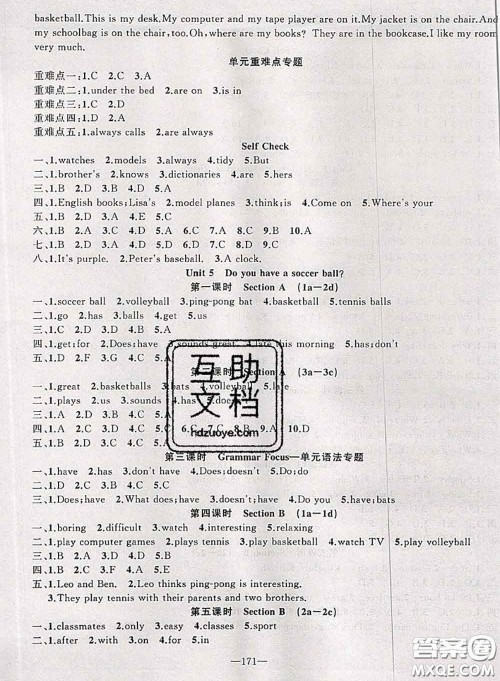 basketball.This is my desk.My computer and my tape player are on it.My jacket is on the chair.And
my schoolbag is on the chair,too.Oh,where are my books? They are in the bookcase.I like my room
very much.
单元重难点专题
重难点一:1.C 2.C 3.A
重难点二:1.under the bed 2.are on 3.is in
重难点三:1.C 2.D
重难点四:1.D 2.C 3.A
重难点五:1.always calls 2.are always
Self Check
一、1.watches 2.models 3.always 4.tidy 5.But
二、1.brother's 2.knows 3.dictionaries 4.are 5.hers
三、1.B 2.D 3.B 4.D 5.A
四、1.English books;Lisa's 2.model planes 3.think;is 4.Come on 5.Where's your
五、1.B 2.D 3.A 4.E 5.C
六、1.B 2.A 3.D 4.B 5.A 6.C 7.D 8.C 9.B 10.A
七、1.B 2.C 3.D 4.A 5.C
八、1.It's purple. 2.Peter's baseball. 3.A clock.
Unit 5 Do you have a soccer ball?
第一课时 Section A (1a—2d)
一、1.soccer ball 2.volleyball 3.ping-pong bat 4.basketball 5.tennis balls
二、1.go 2.has 3.balls 4.get 5.us
三、1.B 2.A 3.D 4.C
四、1.get;for 2.Does;have 3.sounds great 4.late this morning 5.don't;don't
五、1.D 2.F 3.G 4.
课时 Section A (3a—3c)
一、1.great 2.basketballs 3.bats 4.volleyball
二、1.plays 2.us 3.sounds
三、1.B 2.D 3.C 4.
四、1.A 2.B 3.D 7.C 8.B 9.C 10.A
第三课时 Grammar Focus—单元语法专题
一、1.do 2.has 3.don't have 4.Does;doesn't 5.Do;do
二、1.B 2.A 3.C 4.D 5.C
三、1.Does;have 2.What does;have 3.doesn't have 4.Do you 5.have;bats
第四课时 Section B (1a—1d)
一、1.boring 2.difficult 3.watch 4.interesting 5.relaxing
二、1.play computer games 2.plays tennis 3.play basketball 4.watch TV 5.play volleyball
三、1.B 2.B 3.C 4.D 5.D
四、1.B 2.D 3.C 4.A 5.E
五、1.Leo and Ben. 2.Leo thinks ping-pong is interesting.
3.They play tennis with their parents and two brothers.
第五课时 Section B (2a—2c)
一、1.classmates 2.only 3.easy 4.classes 5.sport
二、1.after 2.with 3.on 4.in 5.on
—171—
互助
文档
hdzuoye.com
答案圈
MXQE.COM